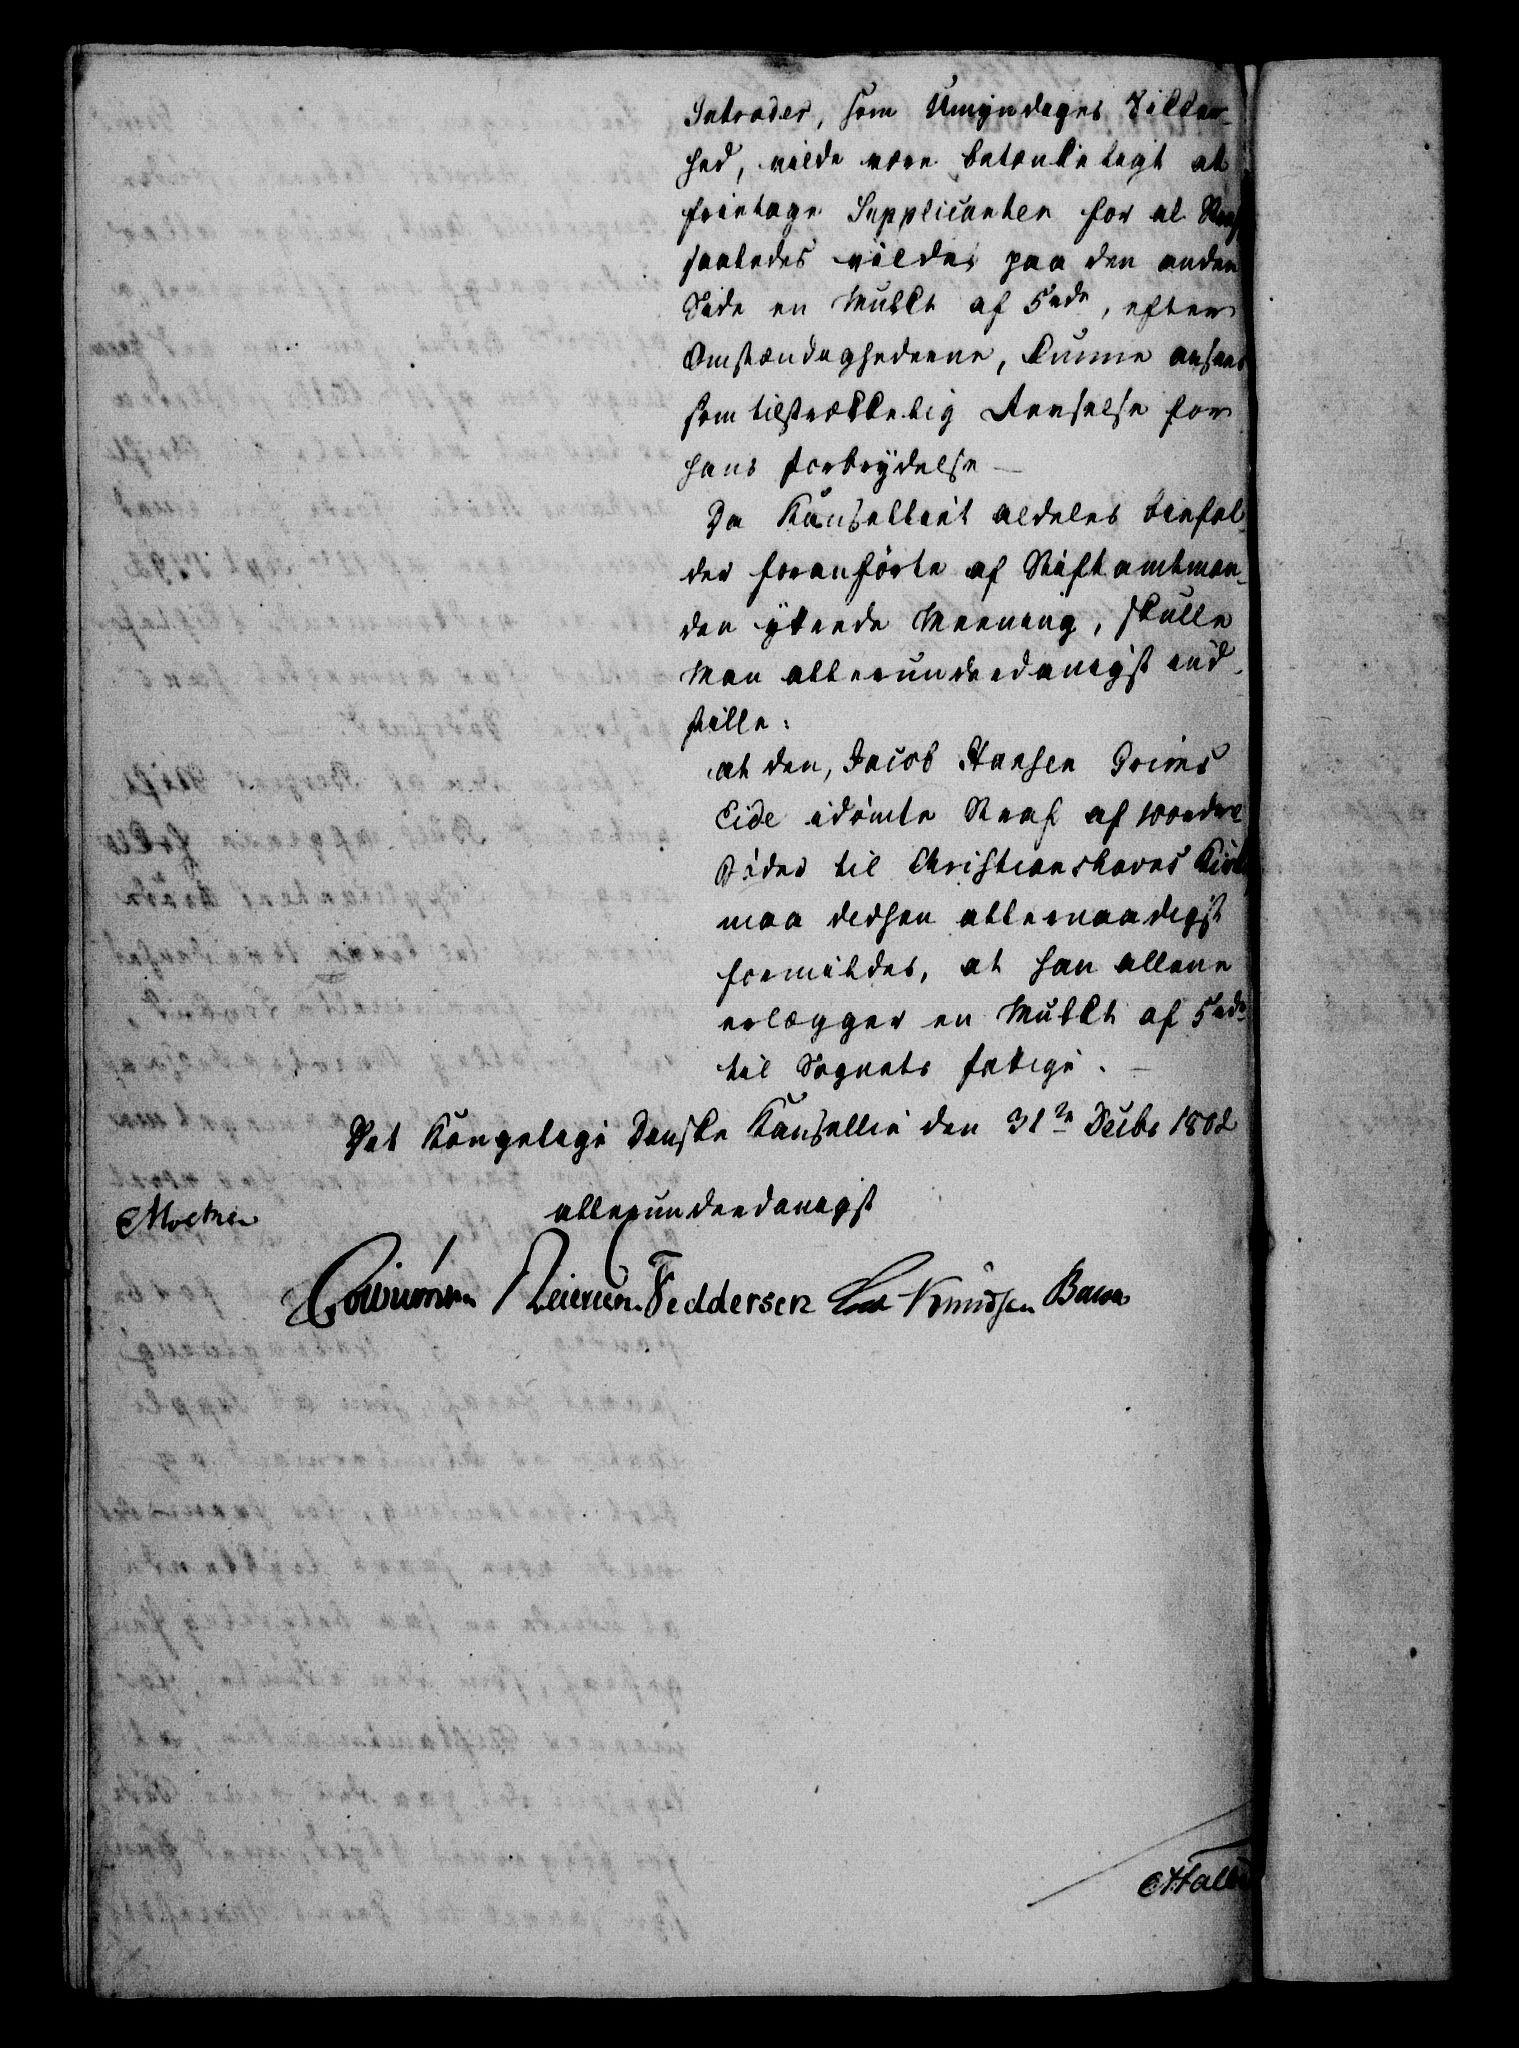 Intrader, som Umyndiges Sikker-
hed, vilde være betænkeligt at
fritage Supplicanten for al Straf
saaledes vilde paa den anden
Side en Mulkt af 5rdr, efter
Omstændighederne, kunne ansees
som tilstrækkelig Avselse for
hans Forbrydelse —
Da Kanselliet aldeles biefal-
der foranførte af Stiftamtman-
den yttrede Meening, skulle
Man allerunderdanigst ind-
stille:
at den, Jacob Hansen Grims
Eide idømte Straf af
til Christianshavns Kirke
maa derhen allernaadigst
formildes, at han allene
erlægger en Mulkt af 5rdr
til Sognets fattige. —
Det Kongelige Danske Kansellie den 31te Decbr 1802
allerunderdanigst
Feddersen Knudsen